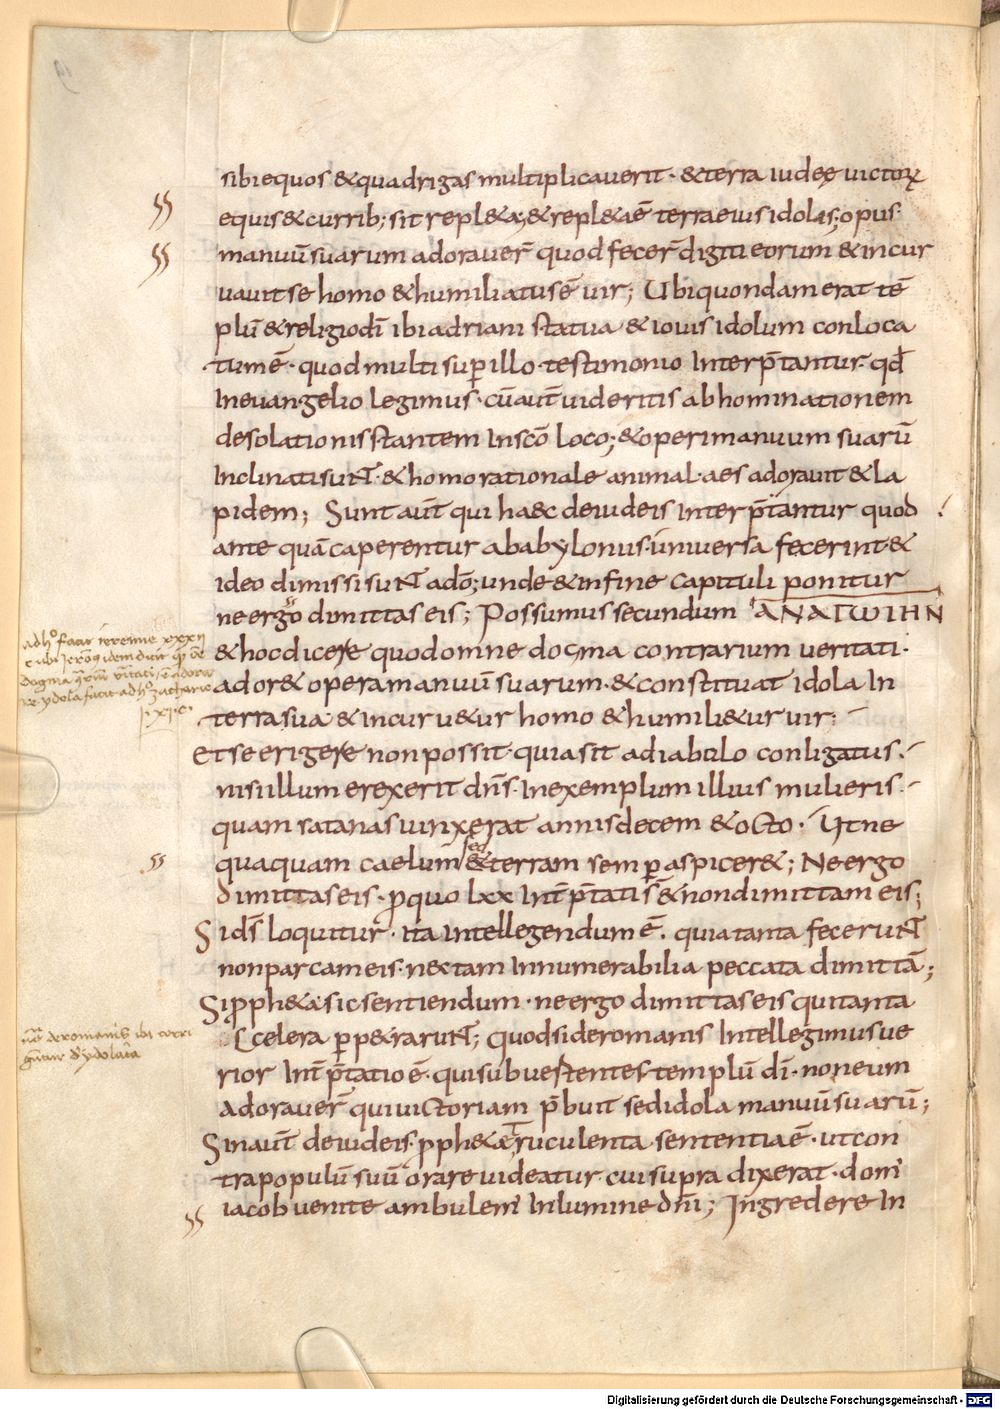 sibi equos & quadrigas multiplicauerit · & terra iudeę uictorȝ
equis & currib; sit repl&a; & repl&a ē terra eius idolis; opus
manuū suarum adorauer̄ quod fecer̄ digiti eorum & incur
uauit se homo & humiliatus ē uir; Ubi quondam erat tē
plū & religio dī ibi adriani statua & iouis idolum conloca
tum ē · quod multi sup̄ illo testimonio Interp̄tantur · qđ
In euangelio legimus · cū aut̄ uideritis abhominationem
desolationis stantem In scō loco; & operi manuum suarū
Inclinati sunt · & homo rationale animal · aes adorauit & la
pidem; Sunt aut̄ qui haec de iudeis Interp̄tantur quod
ante quā caperentur a babylonus · uniuersa fecerint &
ideo dimissi sunt ad o; unde & in fine capituli ponitur
ne ergo dimittas eis; Possumus secundum ΑΝΑΓΩΓΗΝ
& hoc dicere quod omne docma contrarium ueritati ·
ador& opera manuū suarum · & constituat idola In
terra sua & incuru&ur homo & humili&ur uir ·
et se erigere non possit · quia sit a diabulo conligatus ·
nisi illum erexerit dn̄s · In exemplum illius mulieris ·
quam satanas uinxerat annis decem & octo · Ut ne
quaquam caelum sed & terram semp̄ aspicer&; Ne ergo
dimittas eis · p quo lxx Int̄p̄tati s̄ & non dimittam eis;
Si ds̄ loquitur · ita Intellegendum ē · quia tanta fecerunt
non parcam eis · nec tam Innumerabilia peccata dimittā;
Si pph&a sic sentiendum · ne ergo dimittas eis qui tanta
scelera pp&rarunt; quod si de romanis Intellegimus ue
rior Int̄p̄tatio ē · qui subuertentes templū dī · non eum
adorauer̄ qui uictoriam p̄buit sed idola manuū suarū;
Sin aut̄ de iudeis · pph&a truculenta sententia ē · ut con
tra populū suū orare uideatur cui supra dixerat · dom'
iacob uenite ambulem' In lumine dn̄i; Ingredere In
Digitalisierung gefördert durch die Deutsche Forschungsgemeinschaft - DFG